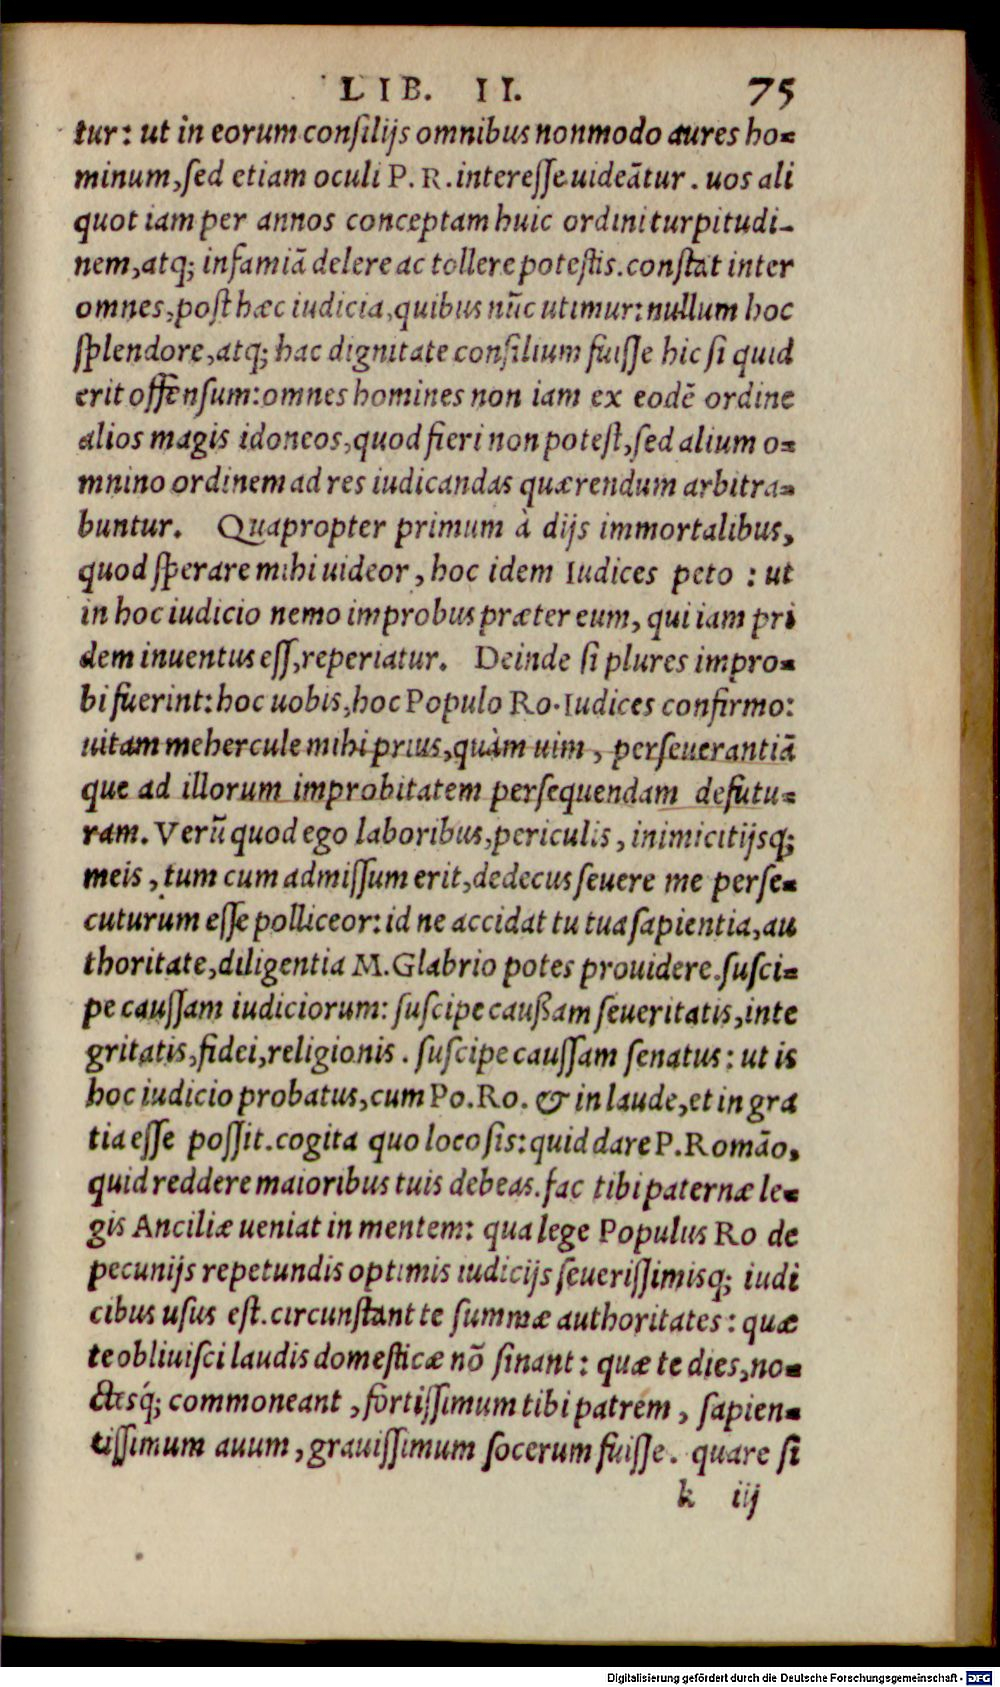 LIB. II. 75
tur: ut in eorum consilijs omnibus nonmodo aures ho-
minum, sed etiam oculi P. R. interesse uideātur. uos ali
quot iam per annos conceptam huic ordini turpitudi-
nem, atq; infamiā delere ac tollere potestis. constat inter
omnes, post hæc iudicia, quibus nūc utimur: nullum hoc
splendore, atq; hac dignitate consilium fuisse hic si quid
erit offensum: omnes homines non iam ex eodē ordine
alios magis idoneos, quod fieri non potest, sed alium o-
mnino ordinem ad res iudicandas quærendum arbitra-
buntur. Quapropter primum à dijs immortalibus,
quod sperare mihi uideor, hoc idem Iudices peto: ut
in hoc iudicio nemo improbus præter eum, qui iam pri
dem inuentus ess, reperiatur. Deinde si plures impro-
bi fuerint: hoc uobis, hoc Populo Ro. Iudices confirmo:
uitam mehercule mihi prius, quàm uim, perseuerantiā
que ad illorum improbitatem persequendam defutu-
ram. Verū quod ego laboribus, periculis, inimicitijsq;
meis, tum cum admissum erit, dedecus seuere me perse-
cuturum esse polliceor: id ne accidat tu tua sapientia, au
thoritate, diligentia M. Glabrio potes prouidere. susci-
pe caussam iudiciorum: suscipe caußam seueritatis, inte
gritatis, fidei, religionis. suscipe caussam senatus: ut is
hoc iudicio probatus, cum Po. Ro. & in laude, et in gra
tia esse possit. cogita quo loco sis: quid dare P. Romāo,
quid reddere maioribus tuis debeas. fac tibi paternæ le-
gis Anciliæ ueniat in mentem: qua lege Populus Ro de
pecunijs repetundis optimis iudicijs seuerissimisq; iudi
cibus usus est. circunstant te summæ authoritates: quæ
te obliuisci laudis domesticæ nō sinant: quæ te dies, no-
ctesq́; commoneant, fortissimum tibi patrem, sapien-
tissimum auum, grauissimum socerum fuisse. quare si
k iij
Digitalisierung gefördert durch die Deutsche Forschungsgemeinschaft - DFG